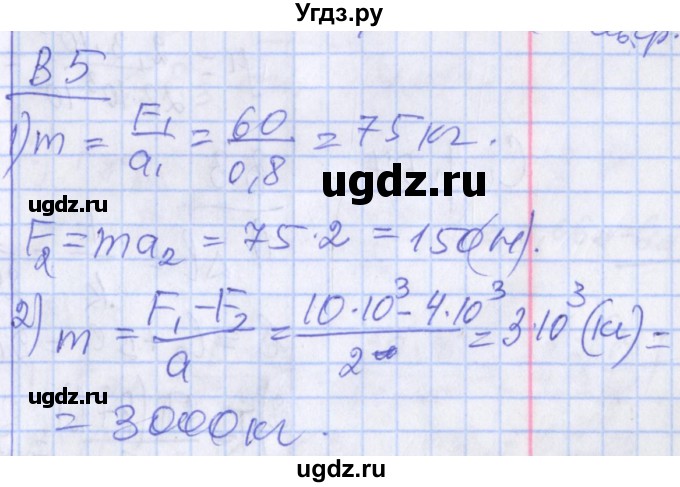 Угдз.ру
В 5
1) m = F₁/a₁ = 60/0,8 = 75 кг.
ugdz.ru
ugdz.ru
F₂ = ma₂ = 75·2 = 150(Н).
2) m = F₁-F₂/a = 10·10³-4·10³/2 = 3·10³(кг) =
ugdz.ru
ugdz.ru
= 3000 кг.
ugdz.ru